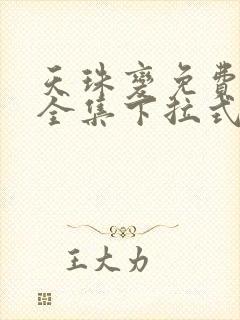 天珠變免費
全集下拉式
王大力